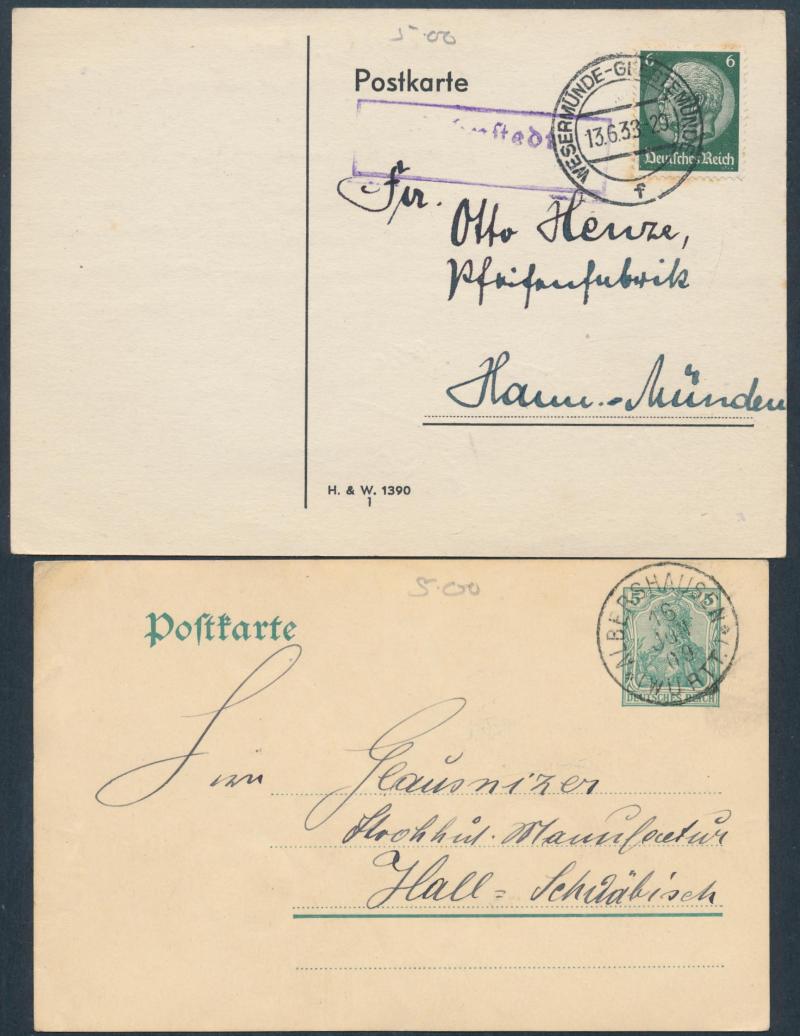 5.00
Postkarte
6 6
Deutsches Reich
13.6.33
f
Fa.
Otto Henze,
Pfeifenfabrik
Hann.-Münden
H. & W. 1390
1
5.00
Postkarte
5 5
DEUTSCHES REICH
ALBERSHAUSEN
16
09
(WÜRTT.)
Glausnizer
Strohhut. Manufactur
Hall = Schwäbisch